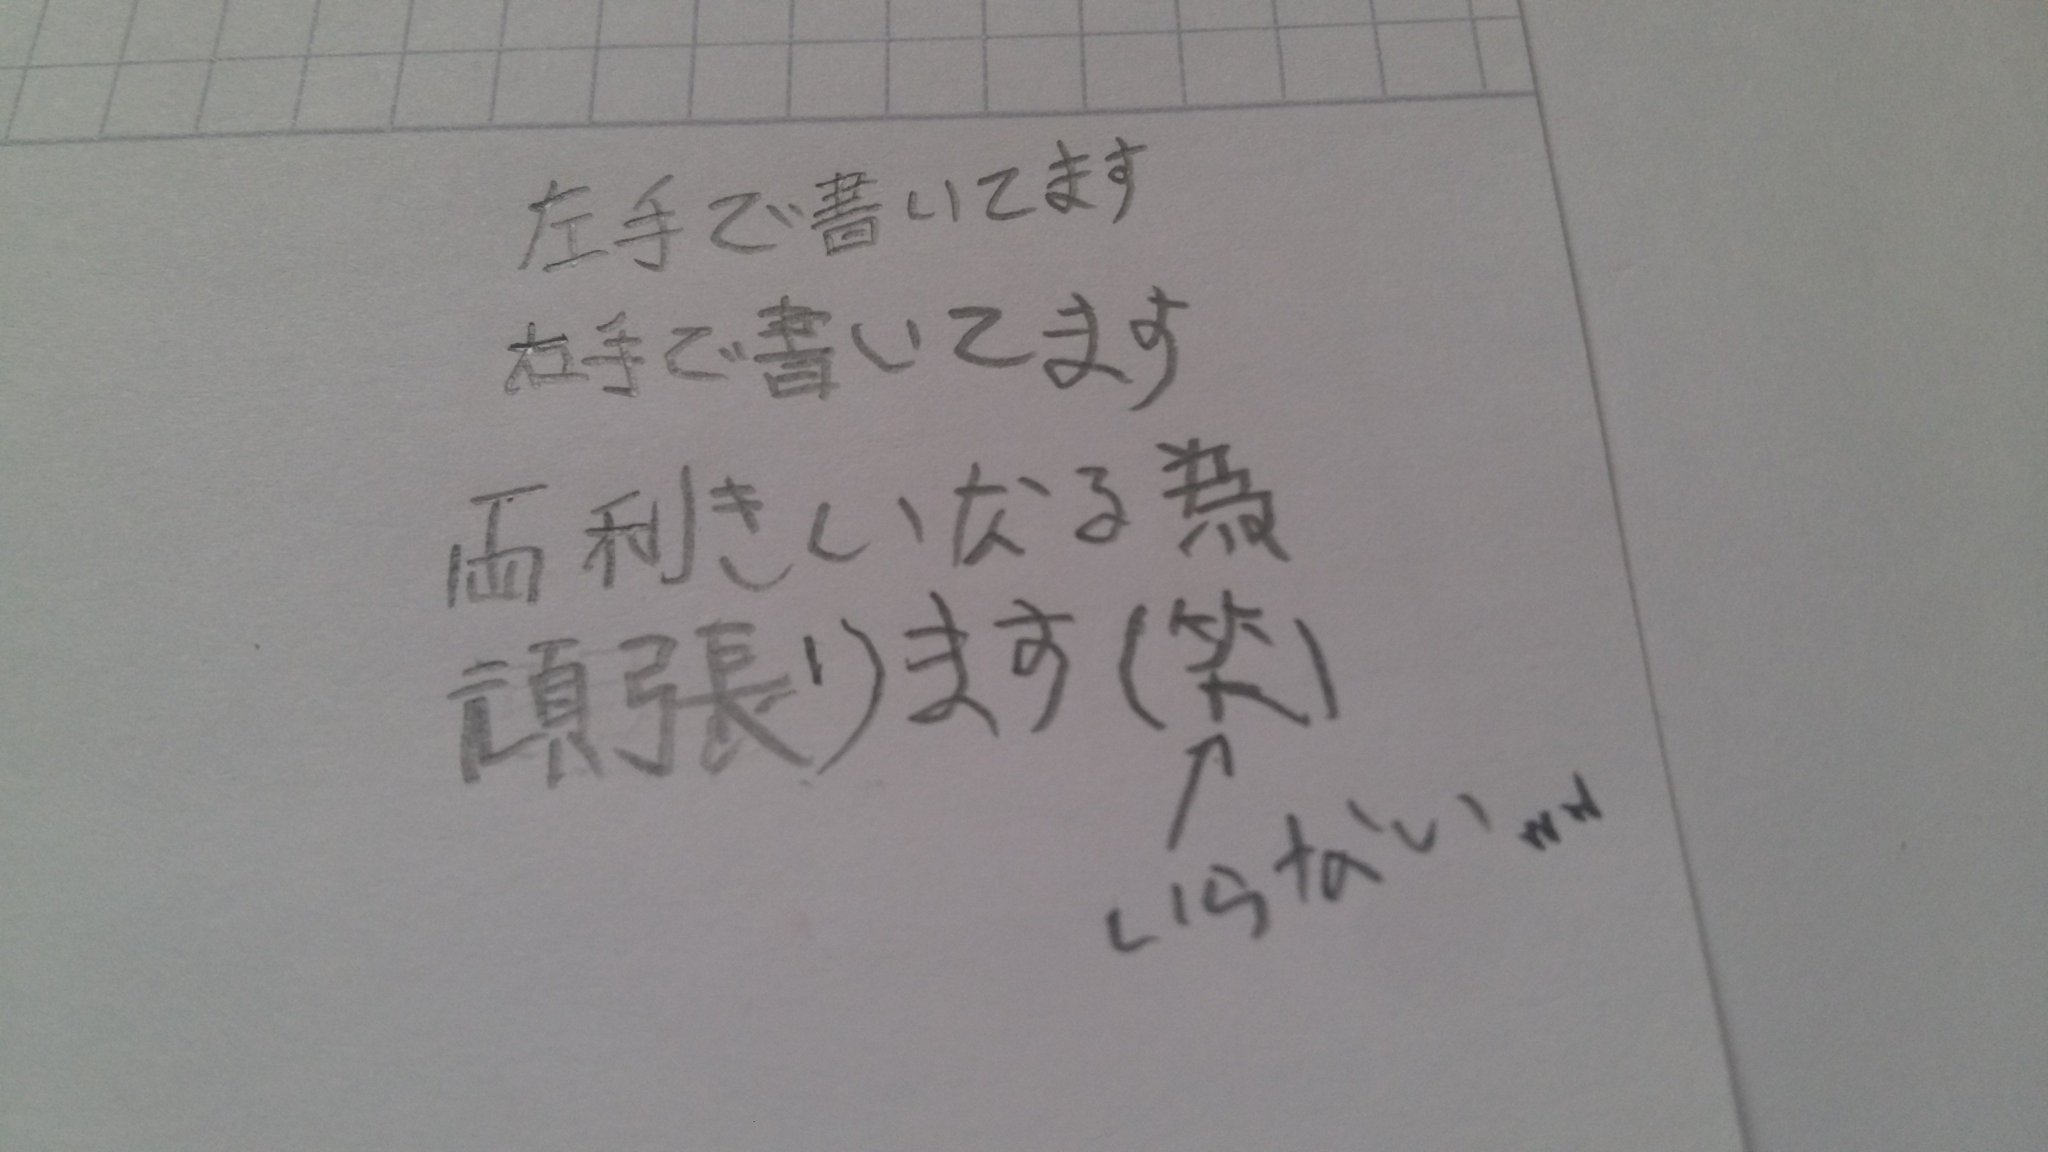 左手で書いてます
右手で書いてます
両利きいなる為
頑張ります(笑)
↑
いらないww